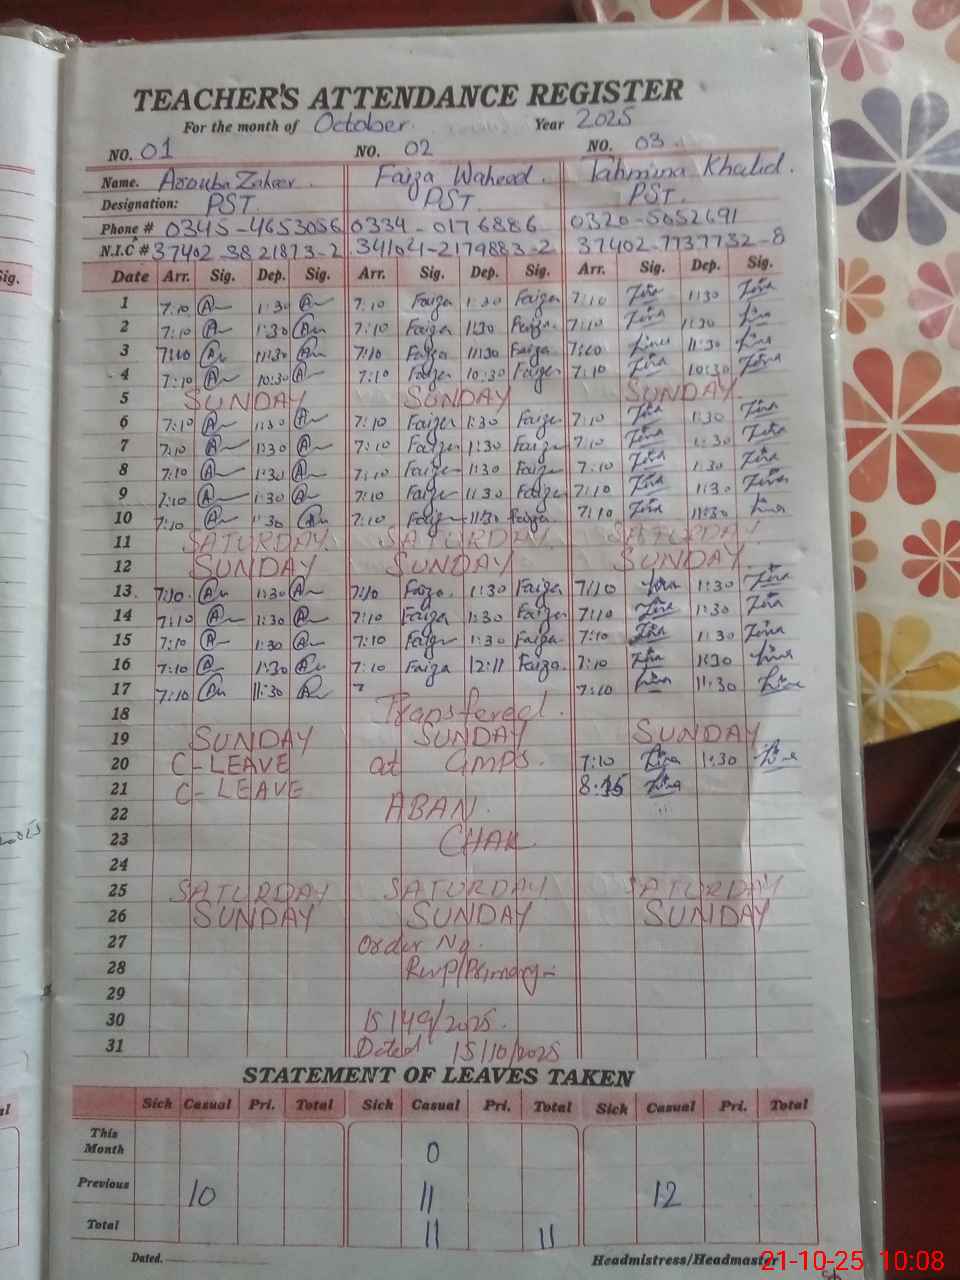 TEACHER'S ATTENDANCE REGISTER
For the month of October Year 2025
NO. 01 NO. 02 NO. 03
Name. Arouba Zaheer. Faiza Waheed. Tahmina Khalid.
Designation: PST. PST. PST.
Phone # 0345-4653056 0334-0176886 0320-5052691
N.I.C # 37402-3821873-2 34104-2179883-2 37402-7737732-8
Date Arr. Sig. Dep. Sig. Arr. Sig. Dep. Sig. Arr. Sig. Dep. Sig.
1 7:10 A 1:30 A 7:10 Faiza 1:30 Faiza 7:10 1:30
2 7:10 A 1:30 A 7:10 Faiza 1:30 Faiza 7:10 1:30
3 7:10 A 11:30 A 7:10 Faiza 11:30 Faiza 7:10 11:30
4 7:10 A 10:30 A 7:10 Faiza 10:30 Faiza 7:10 10:30
5 SUNDAY SUNDAY SUNDAY
6 7:10 A 1:30 A 7:10 Faiza 1:30 Faiza 7:10 1:30
7 7:10 A 1:30 A 7:10 Faiza 1:30 Faiza 7:10 1:30
8 7:10 A 1:30 A 7:10 Faiza 1:30 Faiza 7:10 1:30
9 7:10 A 1:30 A 7:10 Faiza 1:30 Faiza 7:10 1:30
10 7:10 A 1:30 A 7:10 Faiza 11:30 Faiza 7:10 11:30
11 SATURDAY SATURDAY SATURDAY
12 SUNDAY SUNDAY SUNDAY
13 7:10 A 1:30 A 7:10 Faiza 1:30 Faiza 7:10 1:30
14 7:10 A 1:30 A 7:10 Faiza 1:30 Faiza 7:10 1:30
15 7:10 A 1:30 A 7:10 Faiza 1:30 Faiza 7:10 1:30
16 7:10 A 1:30 A 7:10 Faiza 12:11 Faiza 7:10 1:30
17 7:10 A 11:30 A 7 7:10 11:30
18 Transfered.
19 SUNDAY SUNDAY SUNDAY
20 C-LEAVE at GMPS. 7:10 1:30
21 C-LEAVE 8:15
22 ABAN
23 CHAK
24
25 SATURDAY SATURDAY SATURDAY
26 SUNDAY SUNDAY SUNDAY
27 Order No.
28 Rwp/Primary-
29
30 15149/2025.
31 Dated 15/10/2025
STATEMENT OF LEAVES TAKEN
Sick Casual Pri. Total Sick Casual Pri. Total Sick Casual Pri. Total
This Month 0
Previous 10 11 12
Total 11 11
Dated. Headmistress/Headmaster
21-10-25 10:08